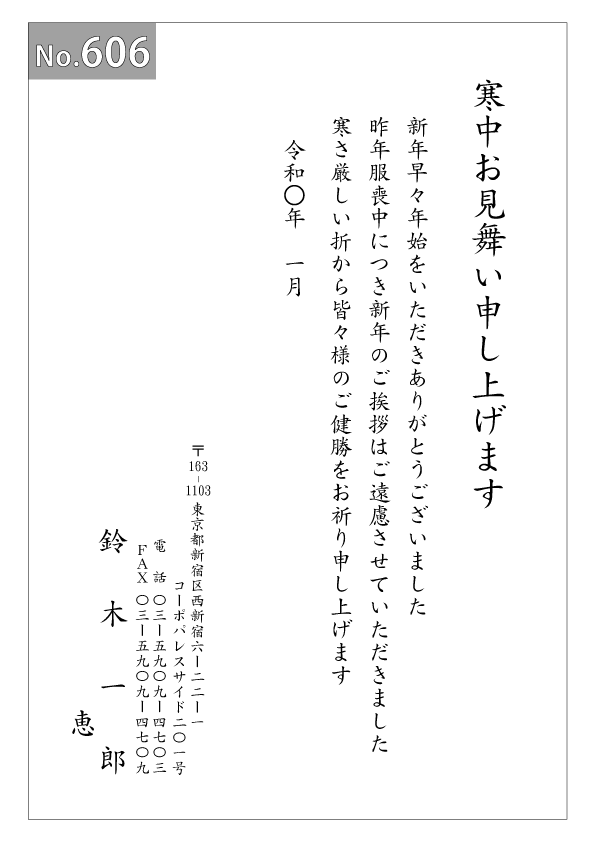 No.606
寒中お見舞い申し上げます
新年早々年始をいただきありがとうございました
昨年服喪中につき新年のご挨拶はご遠慮させていただきました
寒さ厳しい折から皆々様のご健勝をお祈り申し上げます
令和〇年 一月
〒163-1103 東京都新宿区西新宿六ー二二ー一
コーポパレスサイド二〇一号
電 話 〇三ー五九〇九ー四七〇三
FAX 〇三ー五九〇九ー四七〇九
鈴木一郎
恵